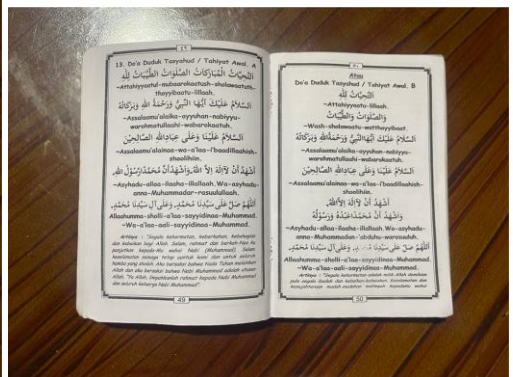 ٤٩
13. Do'a Duduk Tasyahud / Tahiyat Awal. A
اَلتَّحِيَّاتُ الْمُبَارَكَاتُ الصَّلَوَاتُ الطَّيِّبَاتُ لِلّٰهِ
~Attahiyyaatul-mubaarakaatush-sholawaatuth-
thayyibaatu-lillaah.
اَلسَّلاَمُ عَلَيْكَ اَيُّهَا النَّبِيُّ وَرَحْمَةُ اللهِ وَبَرَكَاتُهُ
~Assalaamu'alaika-ayyuhan-nabiyyu-
warahmatullaahi-wabarakaatuh.
اَلسَّلاَمُ عَلَيْنَا وَعَلَى عِبَادِاللهِ الصَّالِحِيْنَ
~Assalaamu'alainaa-wa-a'laa-i'baadillaahish-
shoolihiin.
اَشْهَدُ اَنْ لاَاِلٰهَ اِلاَّ اللهُ وَاَشْهَدُاَنَّ مُحَمَّدَارَسُوْلُ اللهِ
~Asyhadu-allaa-ilaaha-illallaah. Wa-asyhadu-
anna-Muhammadar-rasuulullaah.
اَللّٰهُمَّ صَلِّ عَلَى سَيِّدِنَا مُحَمَّدٍ، وَعَلَى آلِ سَيِّدِنَا مُحَمَّدٍ.
Allaahumma-sholli-a'laa-sayyidinaa-Muhammad.
~Wa-a'laa-aali-sayyidinaa-Muhammad.
Artinya : "Segala kehormatan, keberkahan, kebahagiaan
dan kebaikan bagi Allah. Salam, rahmat dan berkah-Nya ku
panjatkan kepada-Mu wahai Nabi (Muhammad). Salam
keselamatan semoga tetap untuk kami dan untuk seluruh
hamba yang sholeh. Aku bersaksi bahwa tiada Tuhan melainkan
Allah dan aku bersaksi bahwa Nabi Muhammad adalah utusan
Allah. "Ya Allah, limpahkanlah rahmat kepada Nabi Muhammad
dan seluruh keluarga Nabi Muhammad".
49
٥٠
Atau
Do'a Duduk Tasyahud / Tahiyat Awal. B
اَلتَّحِيَّاتُ لِلّٰهِ
~Attahiyyaatu-lillaah.
وَالصَّلَوَاتُ وَالطَّيِّبَاتُ
~Wash-sholawaatu-watthayyibaat.
اَلسَّلاَمُ عَلَيْكَ اَيُّهَاالنَّبِيُّ وَرَحْمَةُاللهِ وَبَرَكَاتُهُ
~Assalaamu'alaika-ayyuhan-nabiyyu-
warahmatullaahi-wabarakaatuh.
اَلسَّلاَمُ عَلَيْنَا وَعَلَى عِبَادِاللهِ الصَّالِحِيْنَ
~Assalaamu'alainaa-wa-a'laa-i'baadillaahish-
shoolihiin.
اَشْهَدُ اَنْ لاَاِلٰهَ اِلاَّاللهُ.
وَاَشْهَدُ اَنَّ مُحَمَّدًاعَبْدُهُ وَرَسُوْلُهُ
~Asyhadu-allaa-ilaaha-illallaah. Wa-asyhadu-
anna-Muhammadan-'abduhu-warasuuluh.
اَللّٰهُمَّ صَلِّ عَلَى سَيِّدِنَا وَعَلَى آلِ سَيِّدِنَا مُحَمَّدٍ.
Allaahumma-sholli-a'laa-sayyidinaa-Muhammad.
~Wa-a'laa-aali-sayyidinaa-Muhammad.
Artinya : "Segala kehormatan adalah milik Allah demikian
pula segala ibadah dan kebaikan-kebaikan. Keselamatan dan
kesejahteraan mudah-mudahan melimpah kepadamu wahai
50